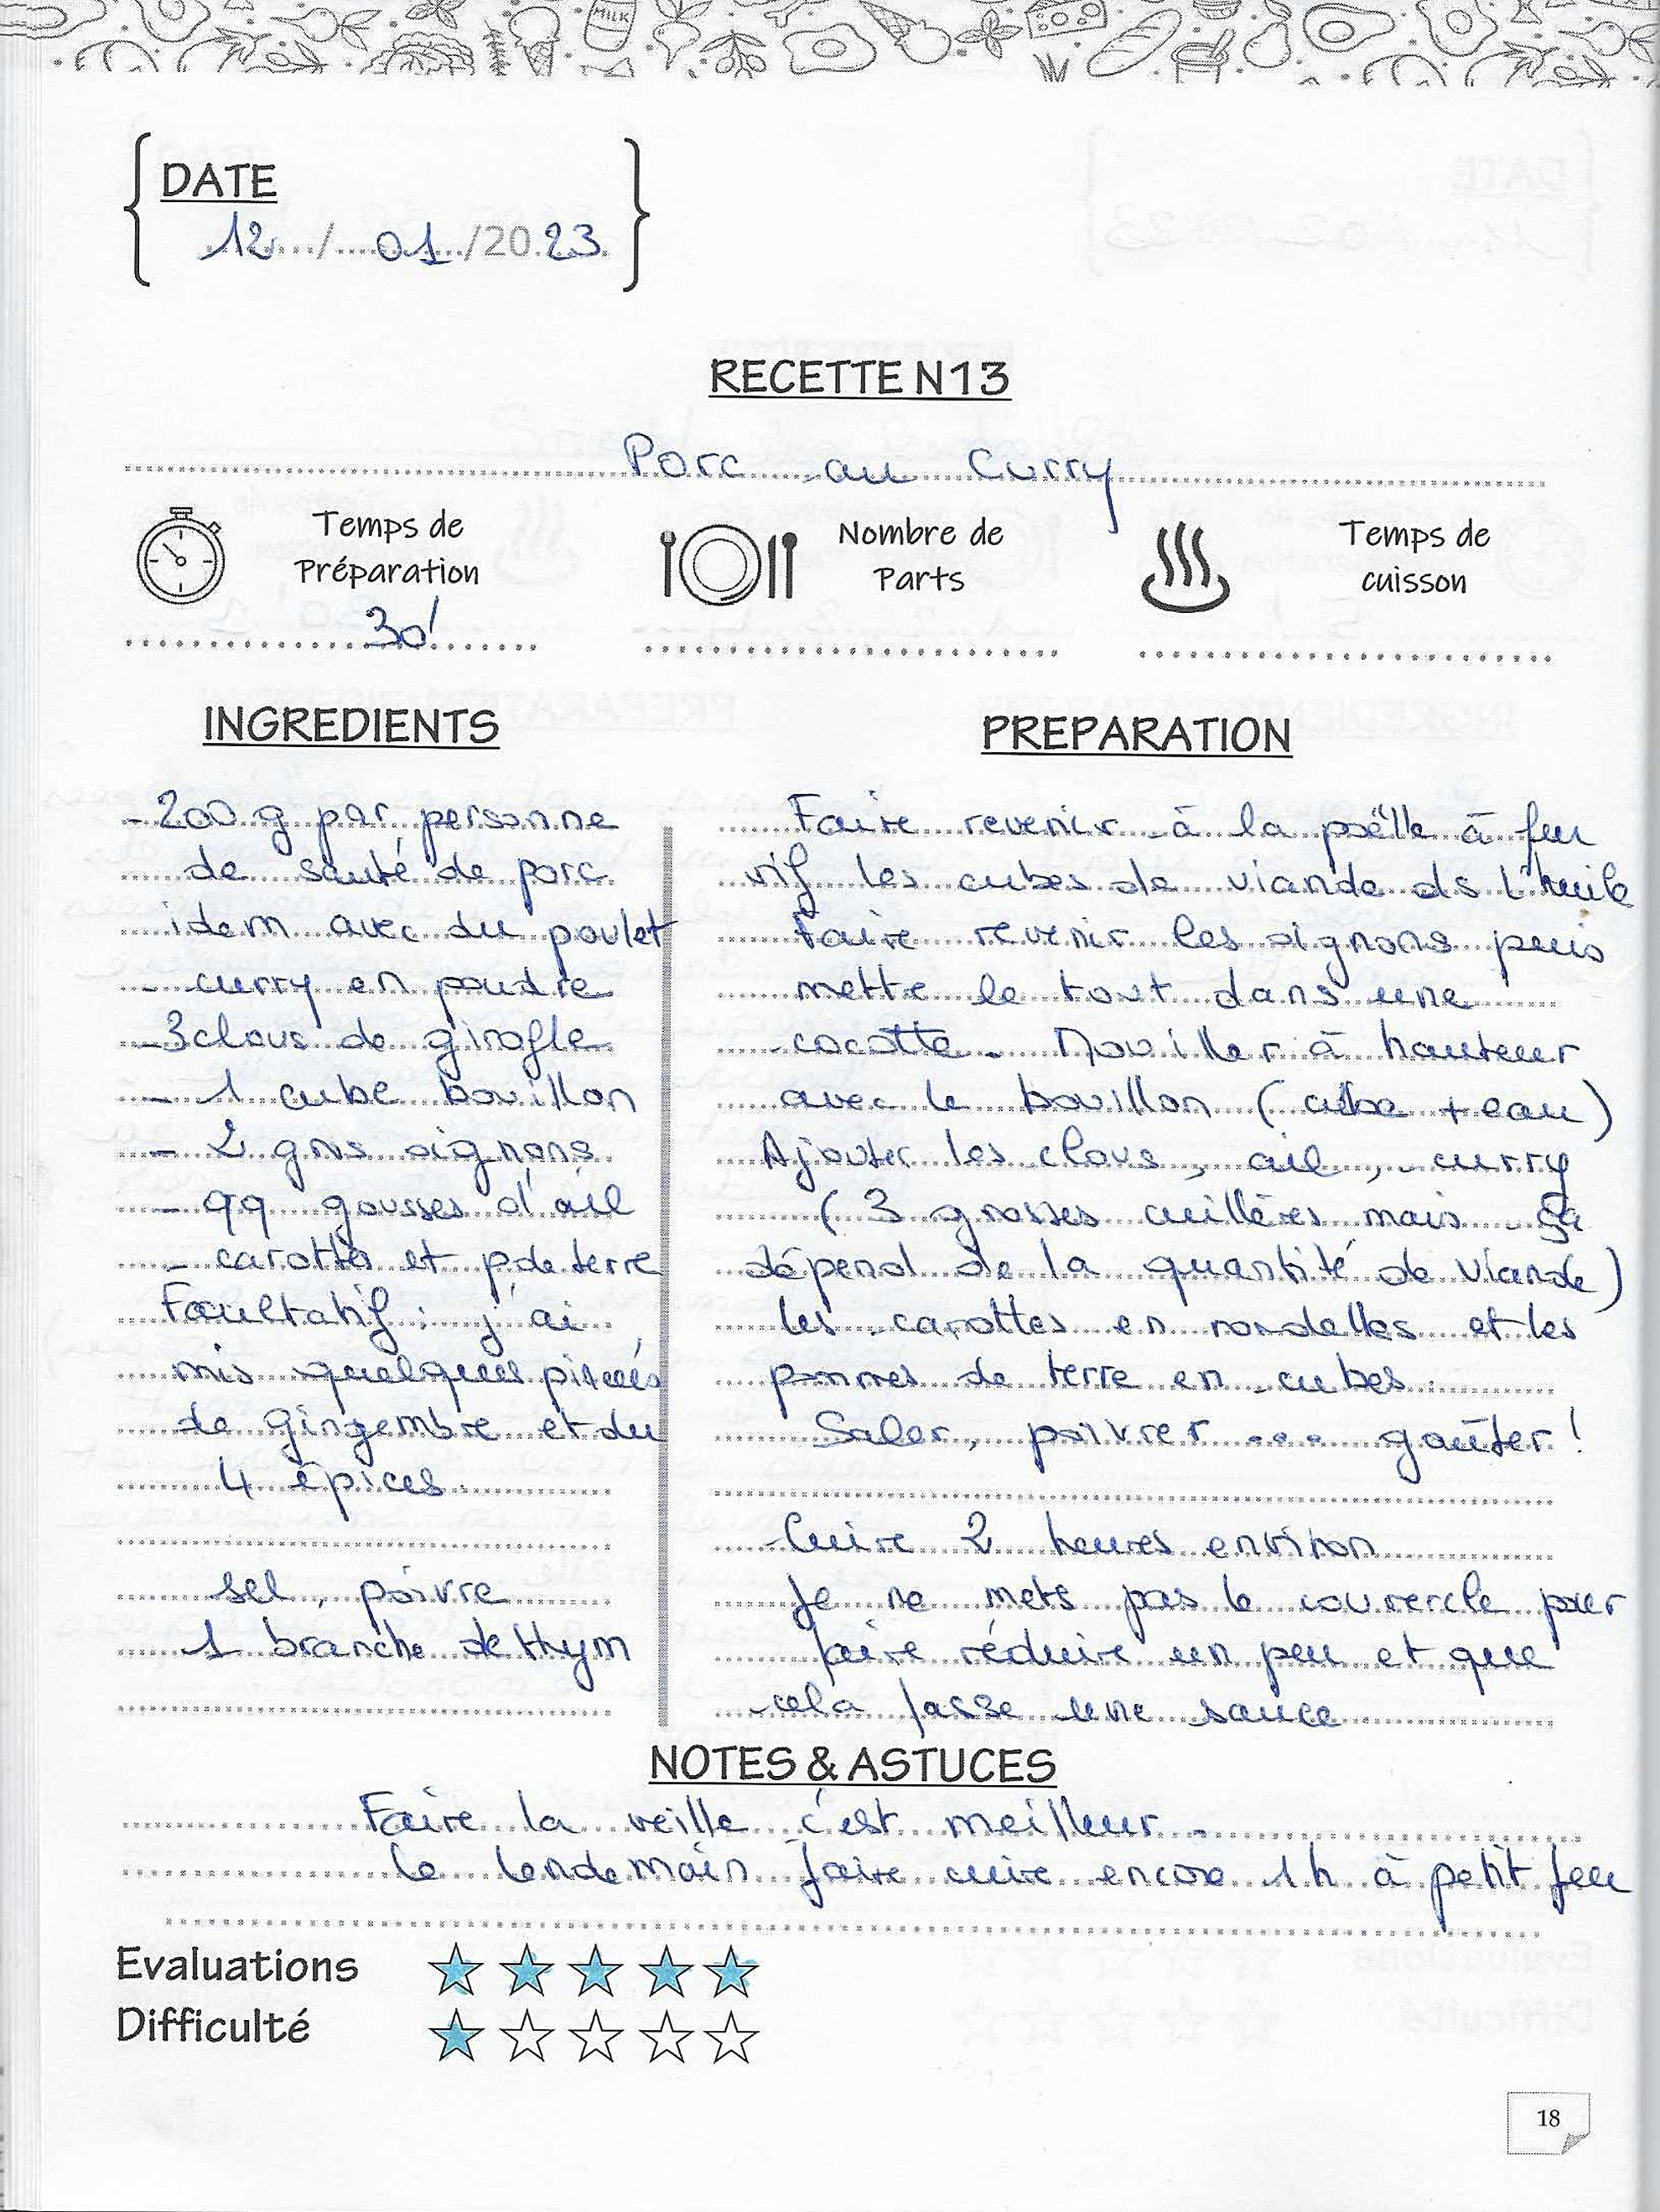 MILK
DATE
12 / 01 /20.23
RECETTE N13
Porc au Curry
Temps de Préparation
30'
Nombre de Parts
Temps de cuisson
INGREDIENTS
- 200 g par personne
de sauté de porc
idem avec du poulet
- curry en poudre
- 3 clous de girofle
- 1 cube bouillon
- 2 gros oignons
- qq gousses d'ail
- carottes et p de terre
Facultatif : j'ai
mis quelques pincées
de gingembre et du
4 épices.
sel, poivre
1 branche de thym
PREPARATION
Faire revenir à la poëlle à feu
vif les cubes de viande ds l'huile
Faire revenir les oignons puis
mettre le tout dans une
cocotte. Mouiller à hauteur
avec le bouillon (cube + eau)
Ajouter les clous, ail, curry
(3 grosses cuillères mais ça
dépend de la quantité de viande)
les carottes en rondelles et les
pommes de terre en cubes.
Saler, poivrer ... goûter !
Cuire 2 heures environ
Je ne mets pas le couvercle pour
faire réduire un peu et que
cela fasse une sauce
NOTES & ASTUCES
Faire la veille c'est meilleur.
Le lendemain faire cuire encore 1h à petit feu
Evaluations
Difficulté
18